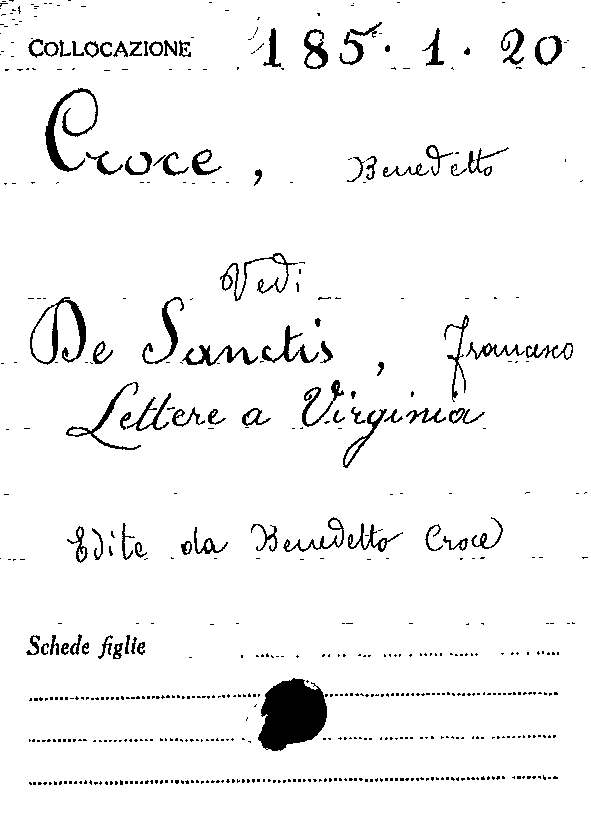 COLLOCAZIONE 185·1·20
Croce, Benedetto
Vedi
De Sanctis, Francesco
Lettere a Virginia
Edite da Benedetto Croce
Schede figlie